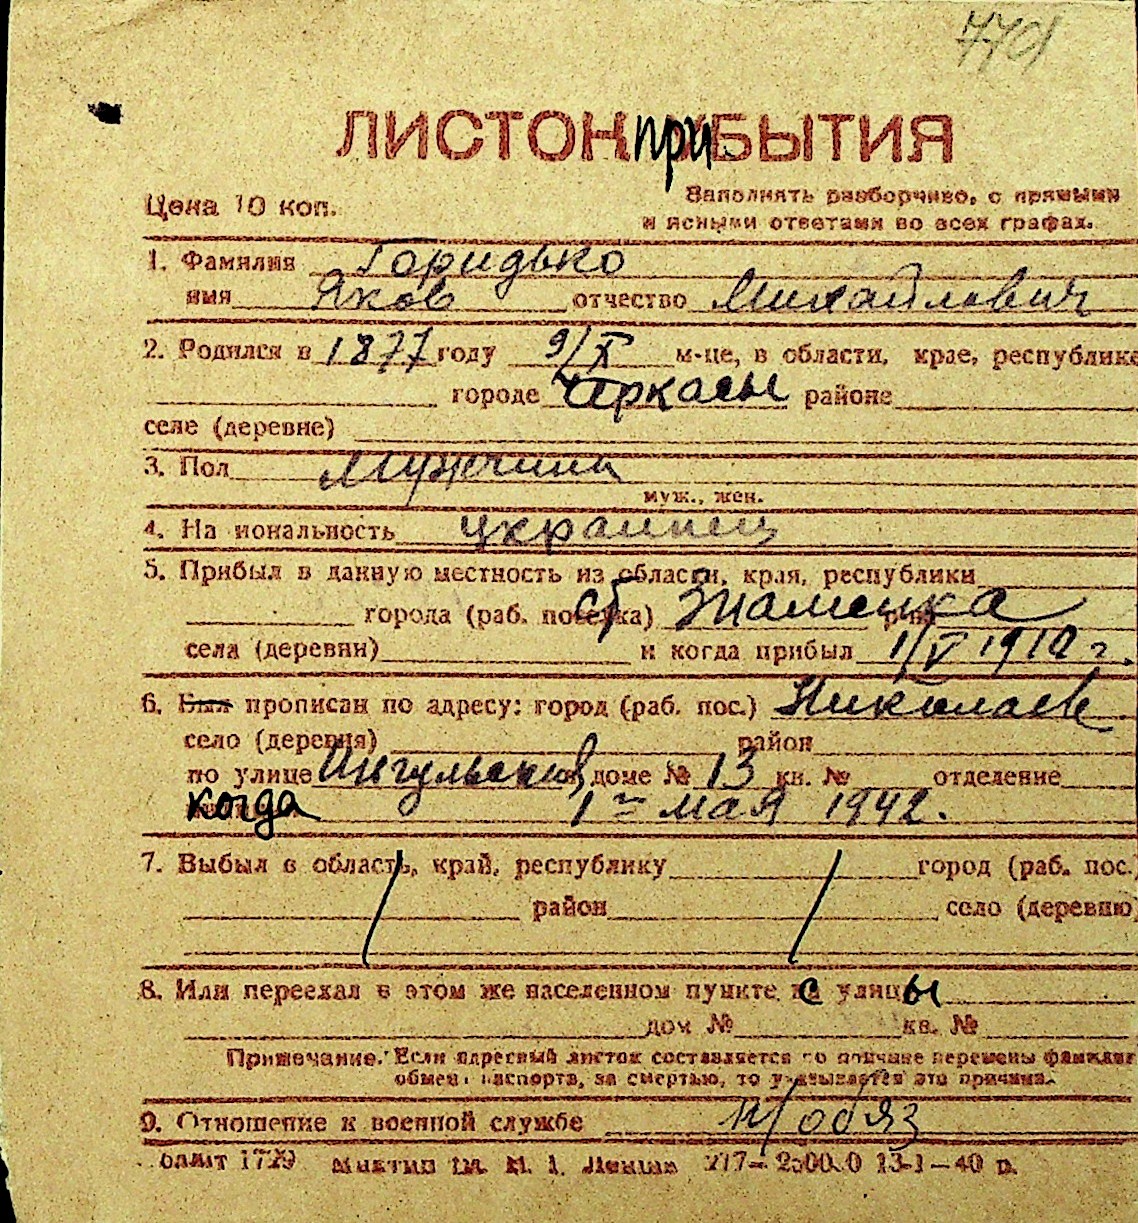 770
ЛИСТОК при БЫТИЯ
Цена 10 коп.
Заполнять разборчиво, с прямыми
и ясными ответами во всех графах.
1. Фамилия Горидько
имя Яков отчество Михайлович
2. Родился в 1877 году 9/X м-це, в области, крае, республике
городе Черкасы районе
селе (деревне)
3. Пол Мужчина
муж., жен.
4. На иональность украинец
5. Прибыл в данную местность из области, края, республики
города (раб. поселка) ст Знаменка р-на
села (деревни) и когда прибыл 1/V 1912 г.
6. Был прописан по адресу: город (раб. пос.) Николаев
село (деревня) район
по улице Ингульская, доме № 13 кв. № отделение
когда 1го мая 1942.
7. Выбыл в область, край, республику город (раб. пос.)
район село (деревню)
8. Или переехал в этом же населенном пункте с улицы
дом № кв. №
Примечание. Если адресный листок составляется по причине перемены фамилии
обмен паспорта, за смертью, то указывается эта причина.
9. Отношение к военной службе н/обяз
1729 им. Ленин 217— 13-1—40 р.